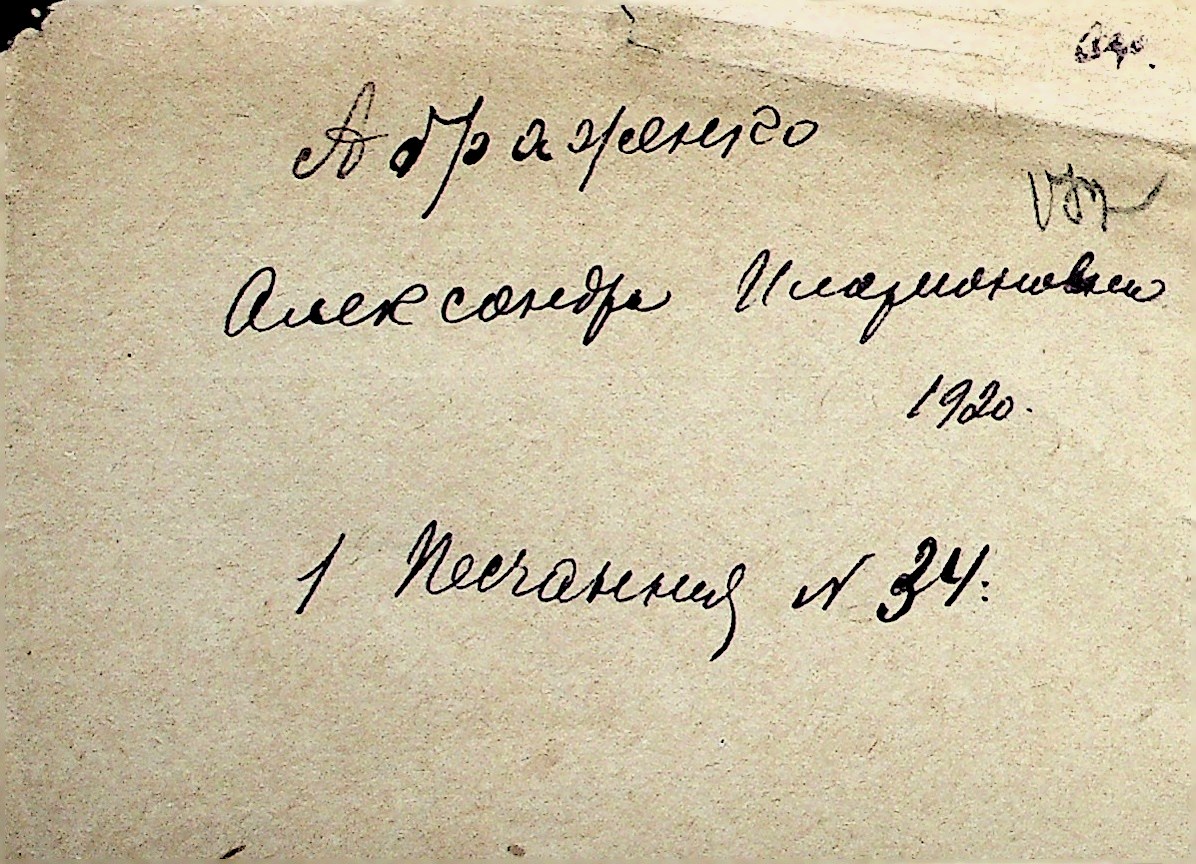 Абраженко
Александра Иларионовна
1920.
1 Песчанная N 34.